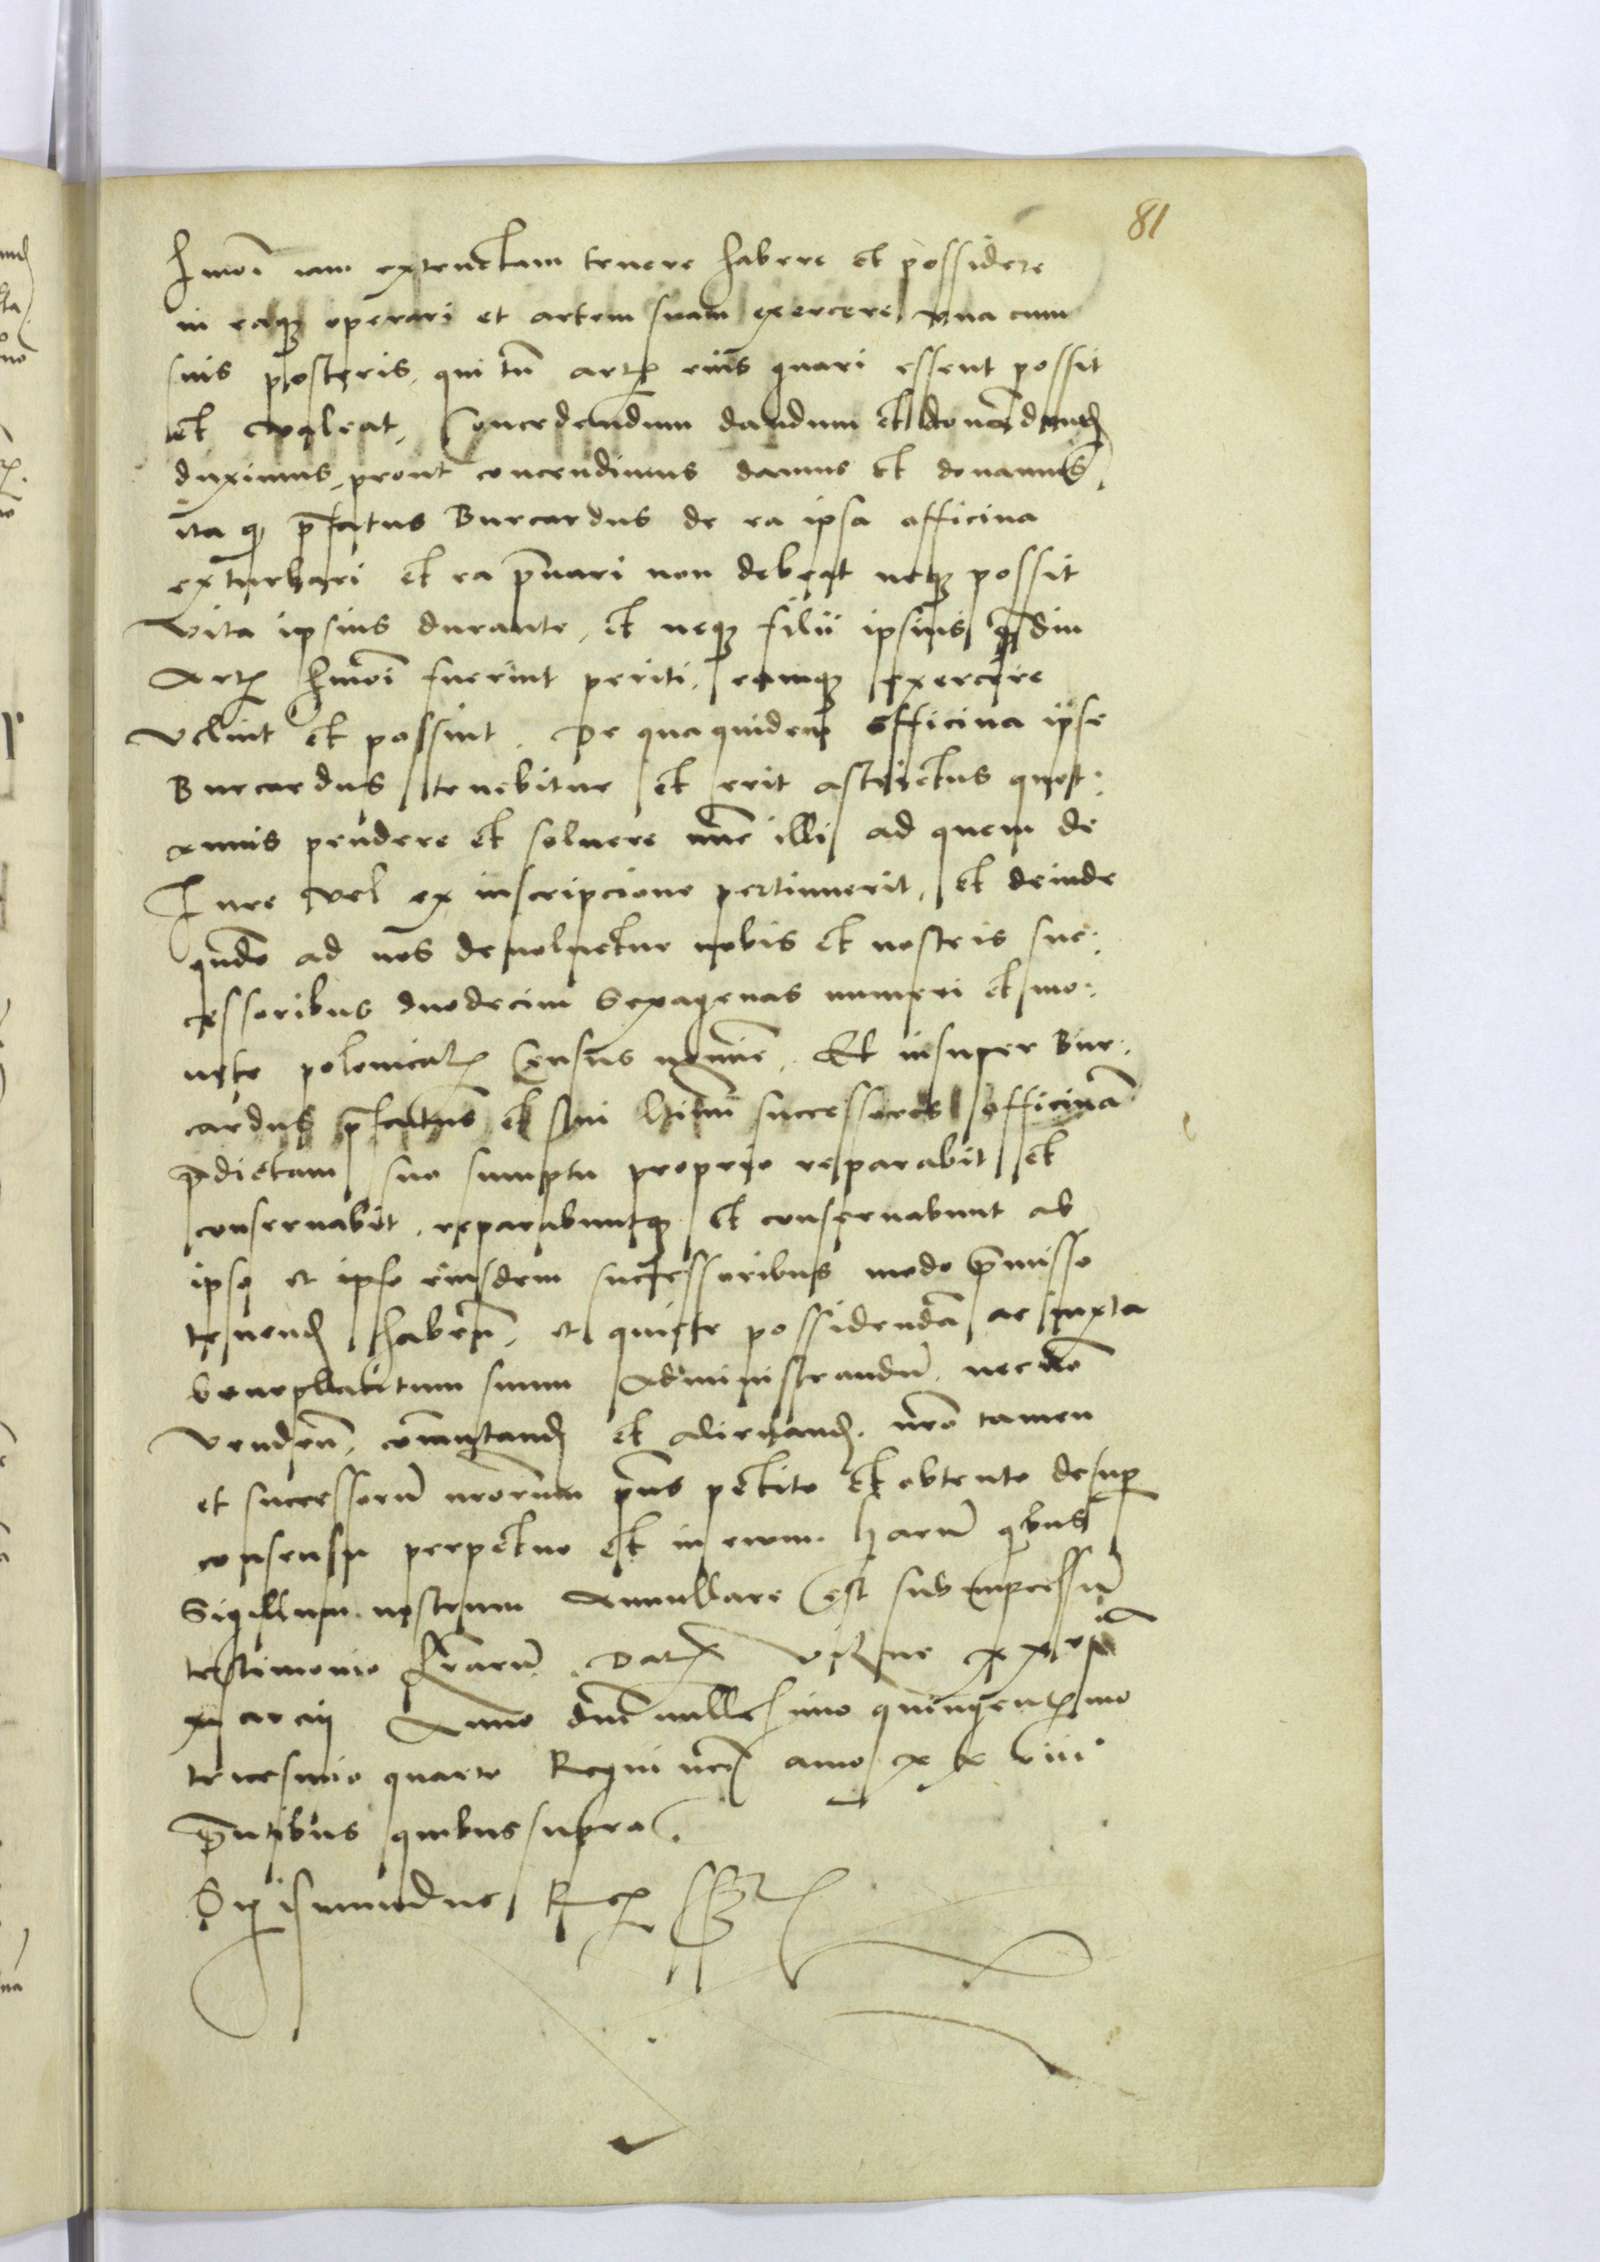 81
hmoi iam extructam tenere habere et possidere
in eaq; operari et artem suam exercere vna cum
suis posteris, qui tn artis eius gnari essent possit
et valeat, Concedendum dandum et donandum
duximus, prout concendimus damus et donamus,
ita q prefatus Burcardus de ea ipsa officina
exturbari et ea priuari non debeat neq; possit
vita ipsius durante, et neq; filii ipsius qdiu
Artis hmoi fuerint periti, eamq; exercere
velint et possint. De qua quidem officina ipse
Burcardus tenebitur et erit astrictus quot:
annis pendere et soluere nunc illi ad quem de
Iure vel ex inscripcione pertinuerit, et deinde
quando ad nos deuoluetur nobis et nostris suc:
cessoribus duodecim Sexagenas numeri et mo:
nete polonicalis Census nomine. Et insuper Bur:
cardus prefatus et sui ltimi successores officinam
predictam suo sumptu proprio reparabit et
conseruabit, reparabuntq; et conseruabunt ab
ipso et ipse eiusdem successoribus modo premisso
tenend habend, et quiete possidendam ac iuxta
beneplacitum suum Administrandum, necnon
vendend, commutand et alienand, nro tamen
et successorum nrorum prius petito et obtento desuper
consensu perpetuo et in euum. harum quibus
Sigillum nostrum Annullare est subimpressum
testimonio lrarum. Datum Vilne xxvia
marcij Anno dni millesimo quingentesimo
tricesimo quarto Regni nri anno xxviii°
presentibus quibus supra.
Sigismundus Rex sst